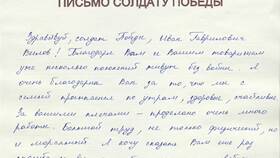 ПИСЬМО СОЛДАТУ ПОБЕДЫ
Здравствуй, солдат Победы, Иван Гаврилович
Вилов! Благодаря Вам и Вашим товарищам
уже несколько поколений живут без войны. Я
очень благодарна Вам за то, что мы с
семьёй просыпаемся по утрам, здоровые, счастливые.
За вашими плечами – проделано очень много
работы. Военный труд, не только физический, но
и моральный. Я хочу сказать Вам ещё раз